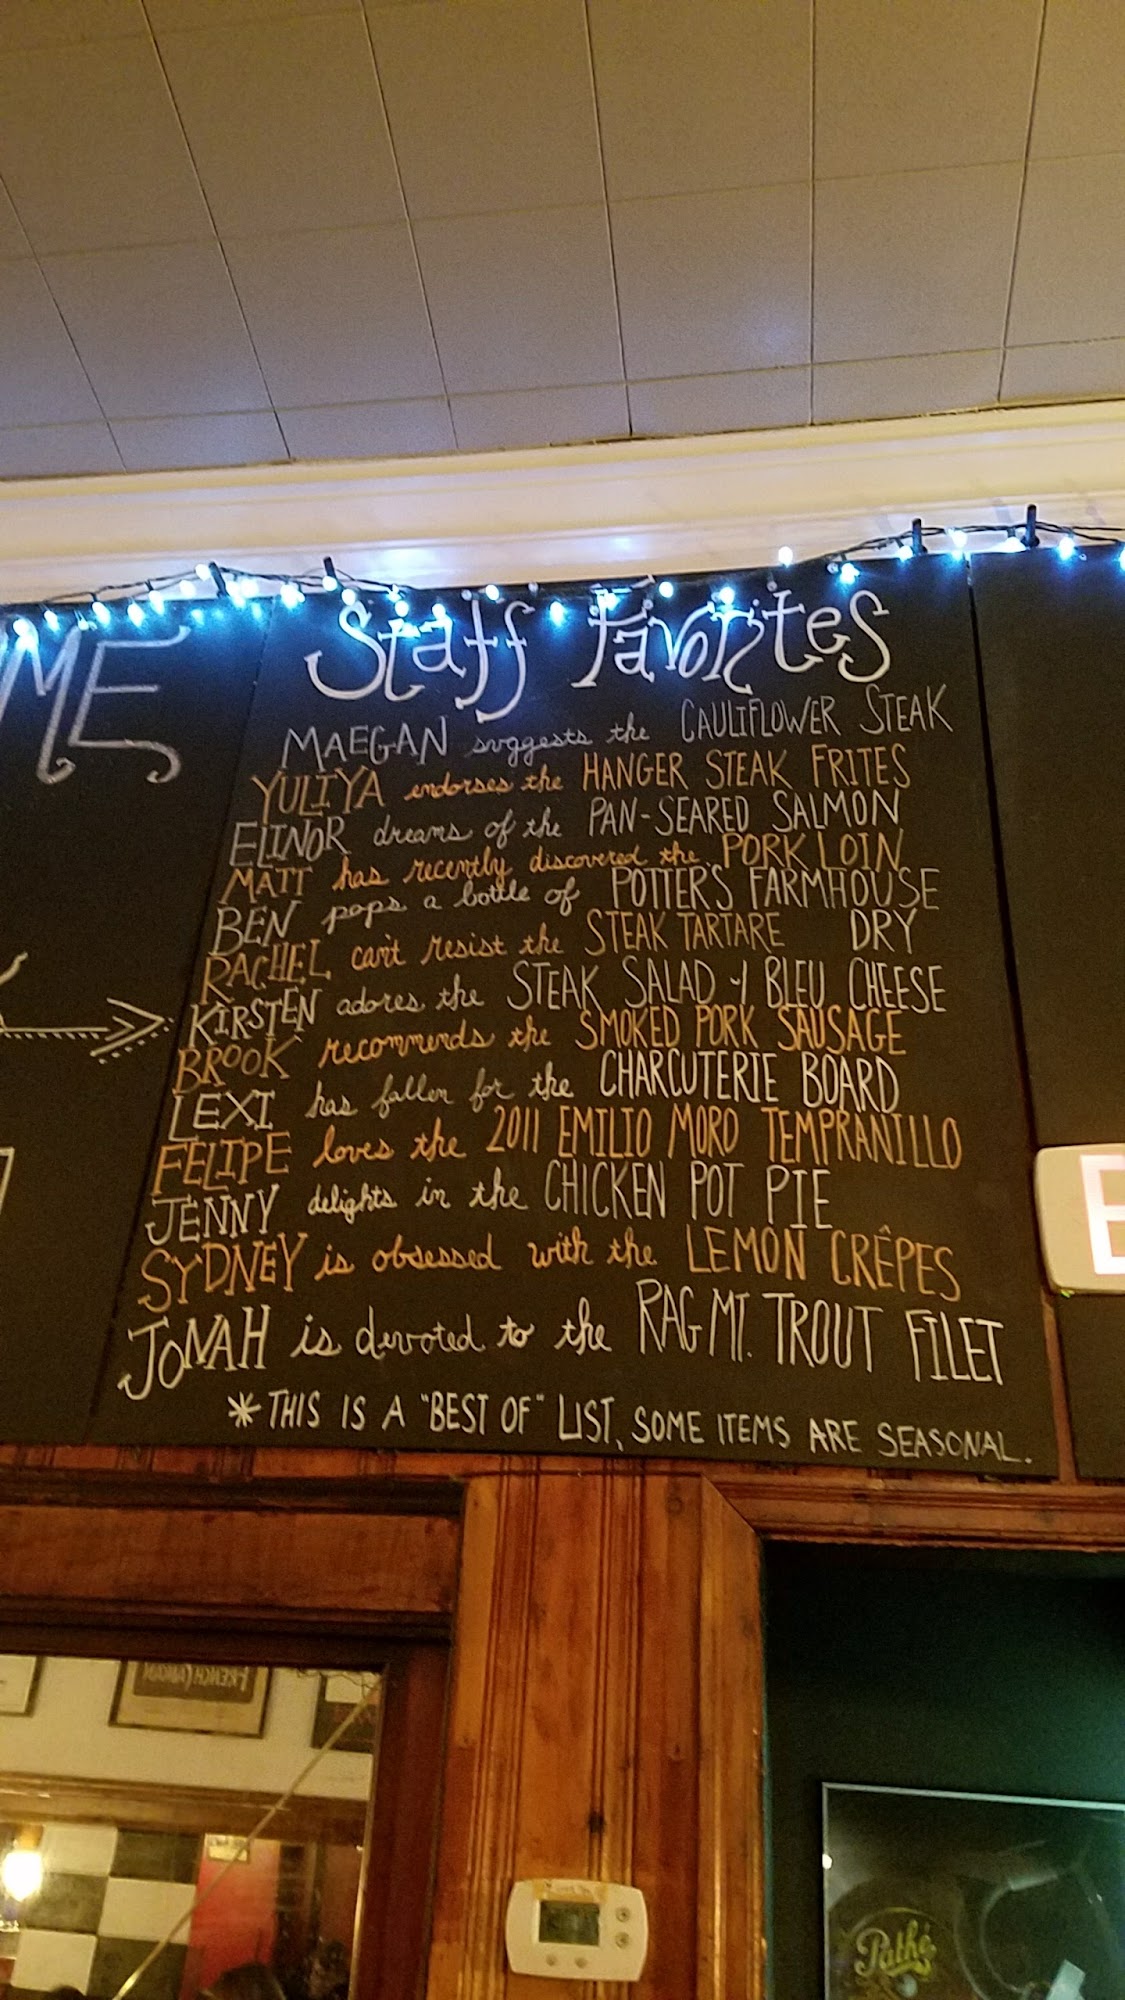 ME
Staff Favorites
MAEGAN suggests the CAULIFLOWER STEAK
YULIYA endorses the HANGER STEAK FRITES
ELINOR dreams of the PAN-SEARED SALMON
MATT has recently discovered the PORK LOIN
BEN pops a bottle of POTTERS FARMHOUSE
DRY
RACHEL can't resist the STEAK TARTARE
KIRSTEN adores the STEAK SALAD y BLEU CHEESE
BROOK recommends the SMOKED PORK SAUSAGE
LEXI has fallen for the CHARCUTERIE BOARD
FELIPE loves the 2011 EMILIO MORO TEMPRANILLO
JENNY delights in the CHICKEN POT PIE
SYDNEY is obsessed with the LEMON CRÊPES
JONAH is devoted to the RAG MT. TROUT FILET
*THIS IS A "BEST OF" LIST, SOME ITEMS ARE SEASONAL.
E
Pathé